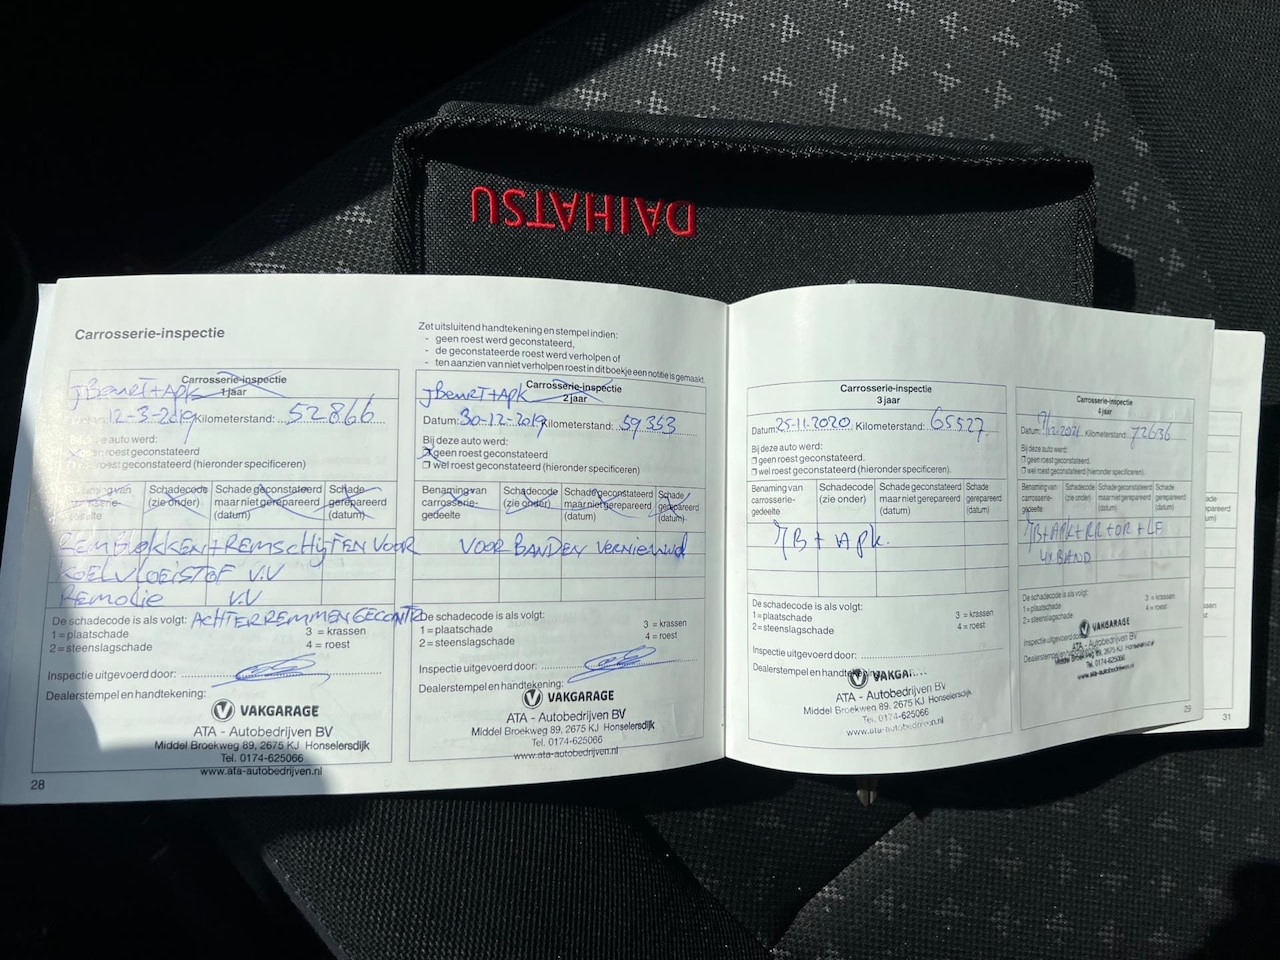 DAIHATSU
Carrosserie-inspectie
Zet uitsluitend handtekening en stempel indien:
- geen roest werd geconstateerd,
- de geconstateerde roest werd verholpen of
- ten aanzien van niet verholpen roest in dit boekje een notitie is gemaakt.
Carrosserie-inspectie
1 jaar
JBeurT+APK
12-3-2019 Kilometerstand: 52866
Bij deze auto werd:
geen roest geconstateerd
wel roest geconstateerd (hieronder specificeren)
Benaming van carrosserie-gedeelte
Schadecode (zie onder)
Schade geconstateerd maar niet gerepareerd (datum)
Schade gerepareerd (datum)
REMBLOKKEN+REMSCHIJTEN VOOR
KOELVLOEISTOF V.V
Remolie V.V
ACHTERREMMEN GECONTR
De schadecode is als volgt:
1 = plaatschade
2 = steenslagschade
3 = krassen
4 = roest
Inspectie uitgevoerd door:
Dealerstempel en handtekening:
VAKGARAGE
ATA - Autobedrijven BV
Middel Broekweg 89, 2675 KJ Honselersdijk
Tel. 0174-625066
www.ata-autobedrijven.nl
28
Carrosserie-inspectie
2 jaar
JBeurT+APK
Datum: 30-12-2019 Kilometerstand: 59353
Bij deze auto werd:
geen roest geconstateerd
wel roest geconstateerd (hieronder specificeren)
Benaming van carrosserie-gedeelte
Schadecode (zie onder)
Schade geconstateerd maar niet gerepareerd (datum)
Schade gerepareerd (datum)
VOOR BANDEN Vernieuwd
De schadecode is als volgt:
1 = plaatschade
2 = steenslagschade
3 = krassen
4 = roest
Inspectie uitgevoerd door:
Dealerstempel en handtekening:
VAKGARAGE
ATA - Autobedrijven BV
Middel Broekweg 89, 2675 KJ Honselersdijk
Tel. 0174-625066
www.ata-autobedrijven.nl
Carrosserie-inspectie
3 jaar
Datum: 25-11-2020 Kilometerstand: 65527
Bij deze auto werd:
geen roest geconstateerd.
wel roest geconstateerd (hieronder specificeren).
Benaming van carrosserie-gedeelte
Schadecode (zie onder)
Schade geconstateerd maar niet gerepareerd (datum)
Schade gerepareerd (datum)
JB + Apk.
De schadecode is als volgt:
1 = plaatschade
2 = steenslagschade
3 = krassen
4 = roest
Inspectie uitgevoerd door:
Dealerstempel en handtekening:
VAKGARAGE
ATA - Autobedrijven BV
Middel Broekweg 89, 2675 KJ Honselersdijk
Tel. 0174-625066
www.ata-autobedrijven.nl
Carrosserie-inspectie
4 jaar
Datum: Kilometerstand: 72636
Bij deze auto werd:
geen roest geconstateerd.
wel roest geconstateerd (hieronder specificeren).
Benaming van carrosserie-gedeelte
Schadecode (zie onder)
Schade geconstateerd maar niet gerepareerd (datum)
Schade gerepareerd (datum)
JB+APK+RR+OR+LF
4x BAND
De schadecode is als volgt:
1 = plaatschade
2 = steenslagschade
3 = krassen
4 = roest
Inspectie uitgevoerd door:
Dealerstempel en handtekening:
VAKGARAGE
ATA - Autobedrijven BV
Middel Broekweg 89, 2675 KJ Honselersdijk
Tel. 0174-625066
www.ata-autobedrijven.nl
29
31